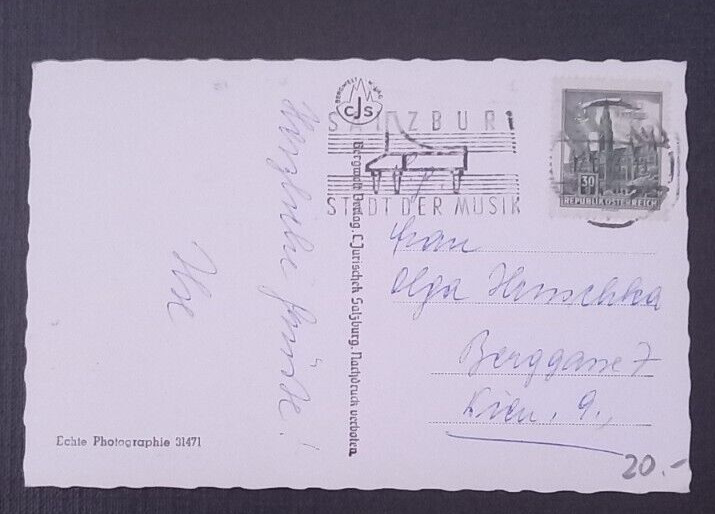 Herzliche Grüße!
Echte Photographie 31471
BERGWELT VERLAG
CJS
Bergwelt Verlag, C. Jurischek Salzburg. Nachdruck verboten.
SALZBURG
STADT DER MUSIK
30
REPUBLIK ÖSTERREICH
Frau
Olga
Berggasse 7
Wien, 9.,
20.-